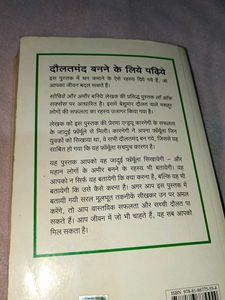 दौलतमंद बनने के लिये पढ़िये
इस पुस्तक में धन कमाने के ऐसे रहस्य दिये गये हैं, जो
आपका जीवन बदल सकते हैं।
सोचिये और अमीर बनिये लेखक की प्रसिद्ध पुस्तक लॉ ऑफ़
सक्सेस पर आधारित है। इसमें बेशुमार दौलत वाले मशहूर
लोगों की सफलता का रहस्य उजागर किया गया है।
लेखक को इस पुस्तक की प्रेरणा एन्ड्रयू कारनेगी के सफलता
के जादुई फॉर्मूले से मिली। कारनेगी ने अपना फॉर्मूला जिन
युवकों को सिखाया था, वे सभी दौलतमंद बन गये, जिससे यह
साबित हो गया कि यह फ़ॉर्मूला सचमुच कारगर है।
यह पुस्तक आपको वह जादुई फ़ॉर्मूला सिखायेगी – और
महान लोगों के अमीर बनने के रहस्य भी बतायेगी। यह
आपको न सिर्फ़ यह बतायेगी कि क्या करना है, बल्कि यह भी
बतायेगी कि उसे कैसे करना है। अगर आप इस पुस्तक में
बतायी गयी सरल मूलभूत तकनीकें सीखकर उन पर अमल
करेंगे, तो आप वास्तविक सफलता और सच्ची दौलत पा
सकते हैं। आप जीवन में जो भी चाहते हैं, वह सब आपको
मिल सकता है।
ISBN 978-81-86775-53-4